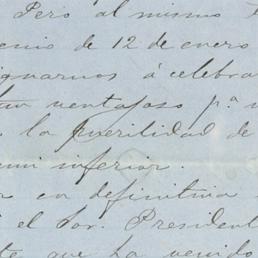 Pero al mismo
enio de 12 de enero
ignarnos á celebra
tan ventajoso p.ª n
la puerilidad de
inferior.
en definitiva
el Sor. President
te que ha venido